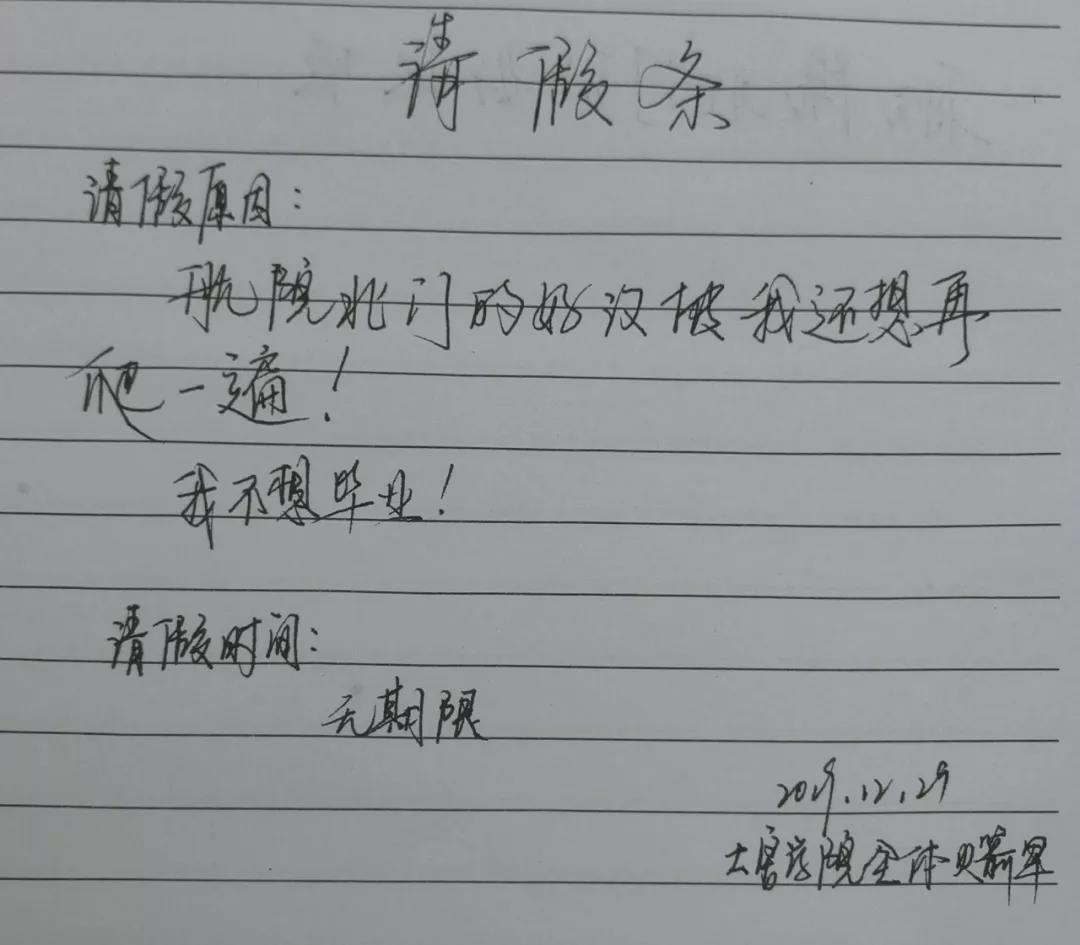 请假条
请假原因：
航院北门的好汉坡我还想再
爬一遍！
我不想毕业！
请假时间：
无期限
2019.12.29
士官学院全体火箭军